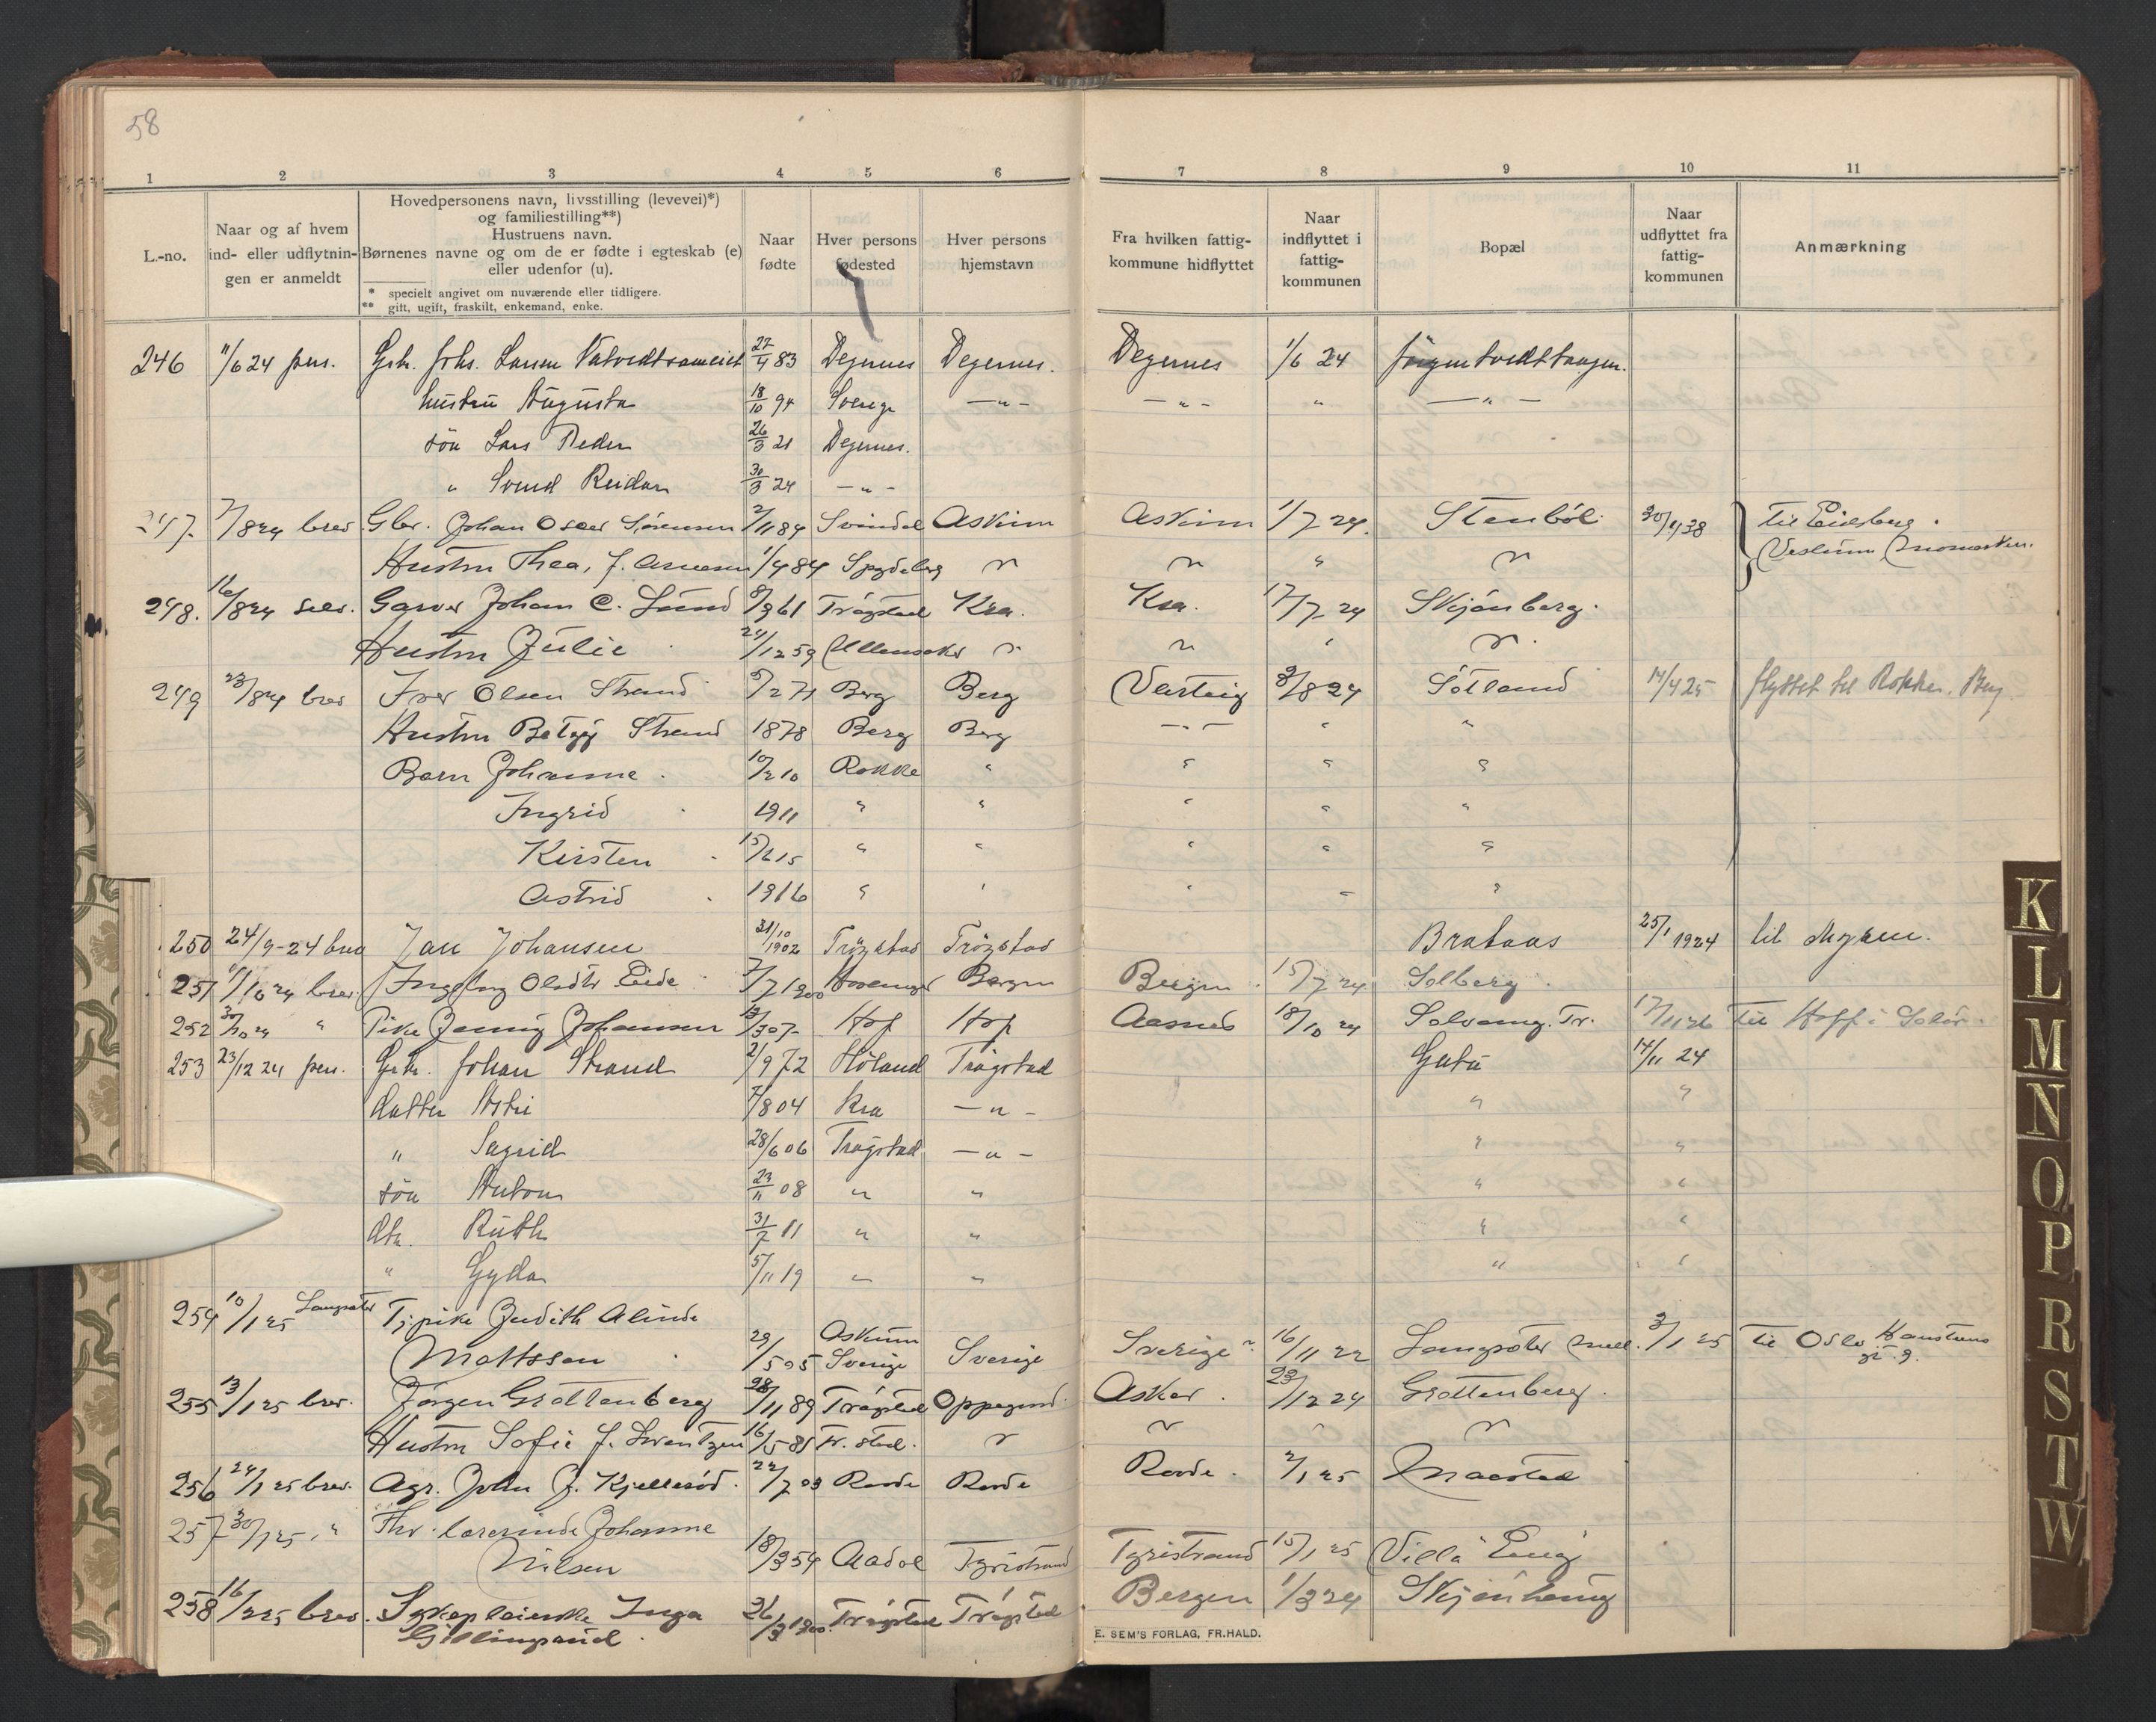 58
1 2 3 4 5 6 7 8 9 10 11
L.-no.
Naar og af hvem ind- eller udflytningen er anmeldt
Hovedpersonens navn, livsstilling (levevei)*)
og familiestilling**)
Hustruens navn.
Børnenes navne og om de er fødte i egteskab (e)
eller udenfor (u).
* specielt angivet om nuværende eller tidligere.
** gift, ugift, fraskilt, enkemand, enke.
Naar fødte
Hver persons fødested
Hver persons hjemstavn
Fra hvilken fattigkommune hidflyttet
Naar indflyttet i fattigkommunen
Bopæl
Naar udflyttet fra fattigkommunen
Anmærkning
246 11/6 24 pers. Grb. Johs. Larsen 27/4 83 Degernes Degernes. Degernes 1/6 24
hustru Augusta 18/10 94 Sverige —"— —"— " —"—
søn Lars Peder 26/3 21 Degernes.
" Svend Reidar 30/3 24 —"—
247. 7/8 24 brev Gbr. Johan Oscar Sørensen 2/11 84 Svindal Askim Askim 1/7 24. Stenbøl 30/4 38 Til Eidsberg.
Hustru Thea, f. Arnesen 1/4 84 Spydeberg " " " "
248. 16/8 24 selv. Garver Johan C. Lund 8/9 61 Trøgstad Kra. Kra. 17/7 24 Skjønberg.
Hustru Julie 24/12 59 Ullensaker " " " "
249 23/8 24 brev Iver Olsen Strand 5/2 71 Berg Berg Varteig 8/8 24 Sötland 14/4 25 flyttet til Rokke, Berg
Hustru Betzy Strand 1878 Berg Berg —"— " "
Barn Johanne 10/2 10 Rokke " " " "
Ingrid 1911 " " " " "
Kirsten 15/2 15 " " " " "
Astrid 1916 " " " " "
250 24/9-24 brev Jan Johansen 31/10 1902 Trøgstad Trøgstad Brataas 25/1 1924 til Mysen.
251 1/10 24 brev Ingeborg Olsdtr Eide 7/7 1900 Bergen Bergen 15/7 24 Solberg
252 30/10 24 " Pike Jenny Johansen 13/3 07 Hof Hof Aasnes 18/10 24 Solvang. Tr. 17/11 26 til Hoff i Solør.
253 23/12 24 pers. Grb. Johan Strand 2/9 72 Høland Trøgstad Gutu 14/11 24
datter Astri 7/8 04 Kra —"— " "
" Sigrid 28/6 06 Trøgstad —"— " "
søn Anton 23/11 08 " " " "
dtr. Ruth 31/7 11 " " " "
" Gyda 5/11 19 " " " "
254 10/1 25 Langsæter Tj.pike Judith Alinde
Mattsson 29/5 05 Askim Sverige Sverige Sverige 16/11 22 Langsæter 3/1 25 til Oslo
255 13/1 25 brev. Jørgen Grøttenberg 28/11 89 Trøgstad Oppegaard Asker. 29/12 24 Grøttenberg.
Hustru Sofie f. Lorentzen 16/5 85 Fr. stad. " " " "
256 24/1 25 brev. Agr. John J. Kjellerød 22/7 03 Raade Raade Raade. 2/1 25
257 30/1 25 " Fhv. lærerinde Johanne
Nilsen 18/3 54 Aadal Tyristrand Tyristrand 15/1 25 Villa Eng
258 16/2 25 brev. Sykepleierske Inga
Gillingsrud. 26/3 1900. Trøgstad Trøgstad Bergen 1/3 24 Skjønhaug
E. SEM'S FORLAG, FR.HALD.
K
L
M
N
O
P
R
S
T
W